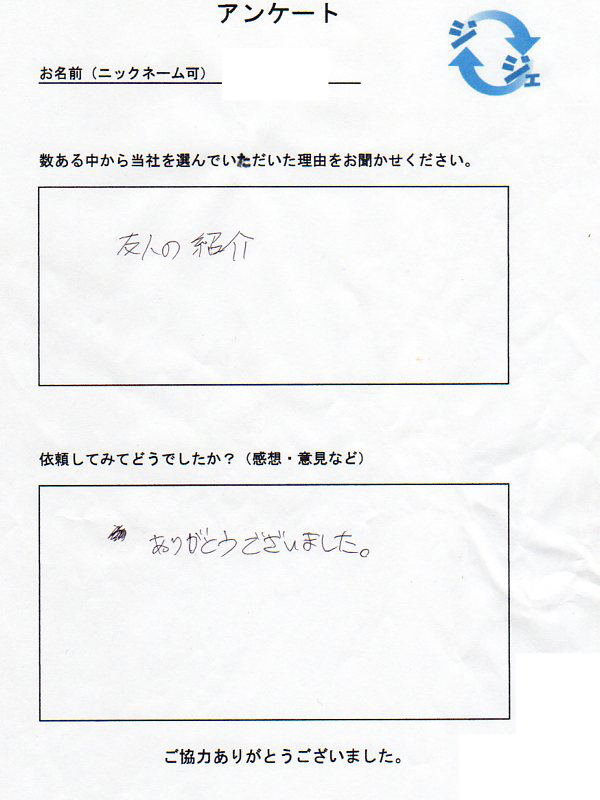 アンケート
ジジェ
お名前（ニックネーム可）
数ある中から当社を選んでいただいた理由をお聞かせください。
友人の紹介
依頼してみてどうでしたか？（感想・意見など）
ありがとうございました。
ご協力ありがとうございました。